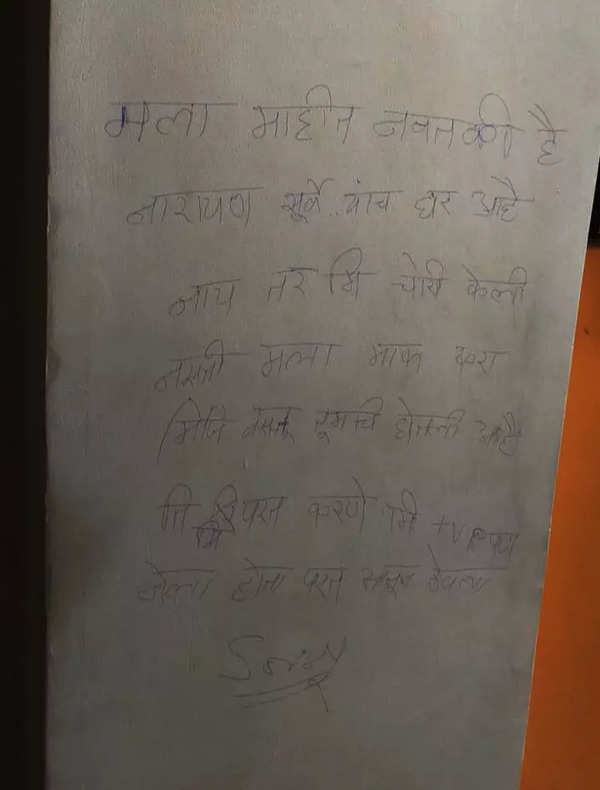 मला माहीत नवत की हे
नारायण सूर्वे यांच घर आहे
नाय तर मि चोरी केली
नसती मला माफ करा
मिजि वस्तू तूमची घेतली आहे
ति मि परत करणे मि TV पण
नेला होता परत आणून ठेवला
Sorry